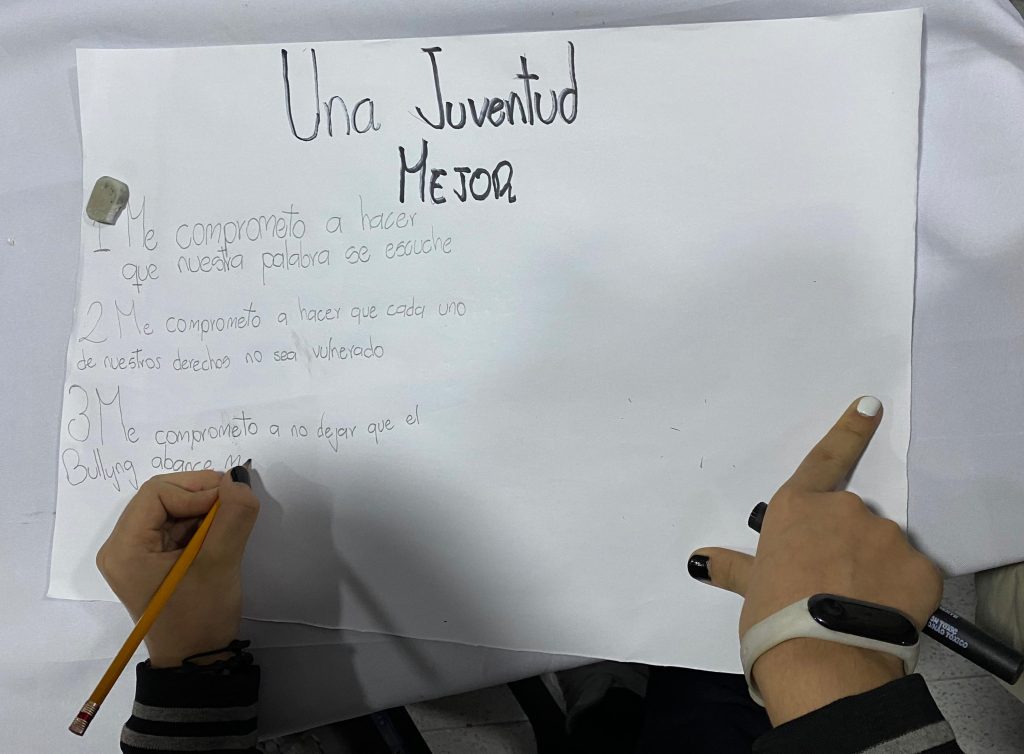 Una Juventud
MEJOR
1 Me comprometo a hacer
que nuestra palabra se escuche
2 Me comprometo a hacer que cada uno
de nuestros derechos no sea vulnerado
3 Me comprometo a no dejar que el
Bullyng abance